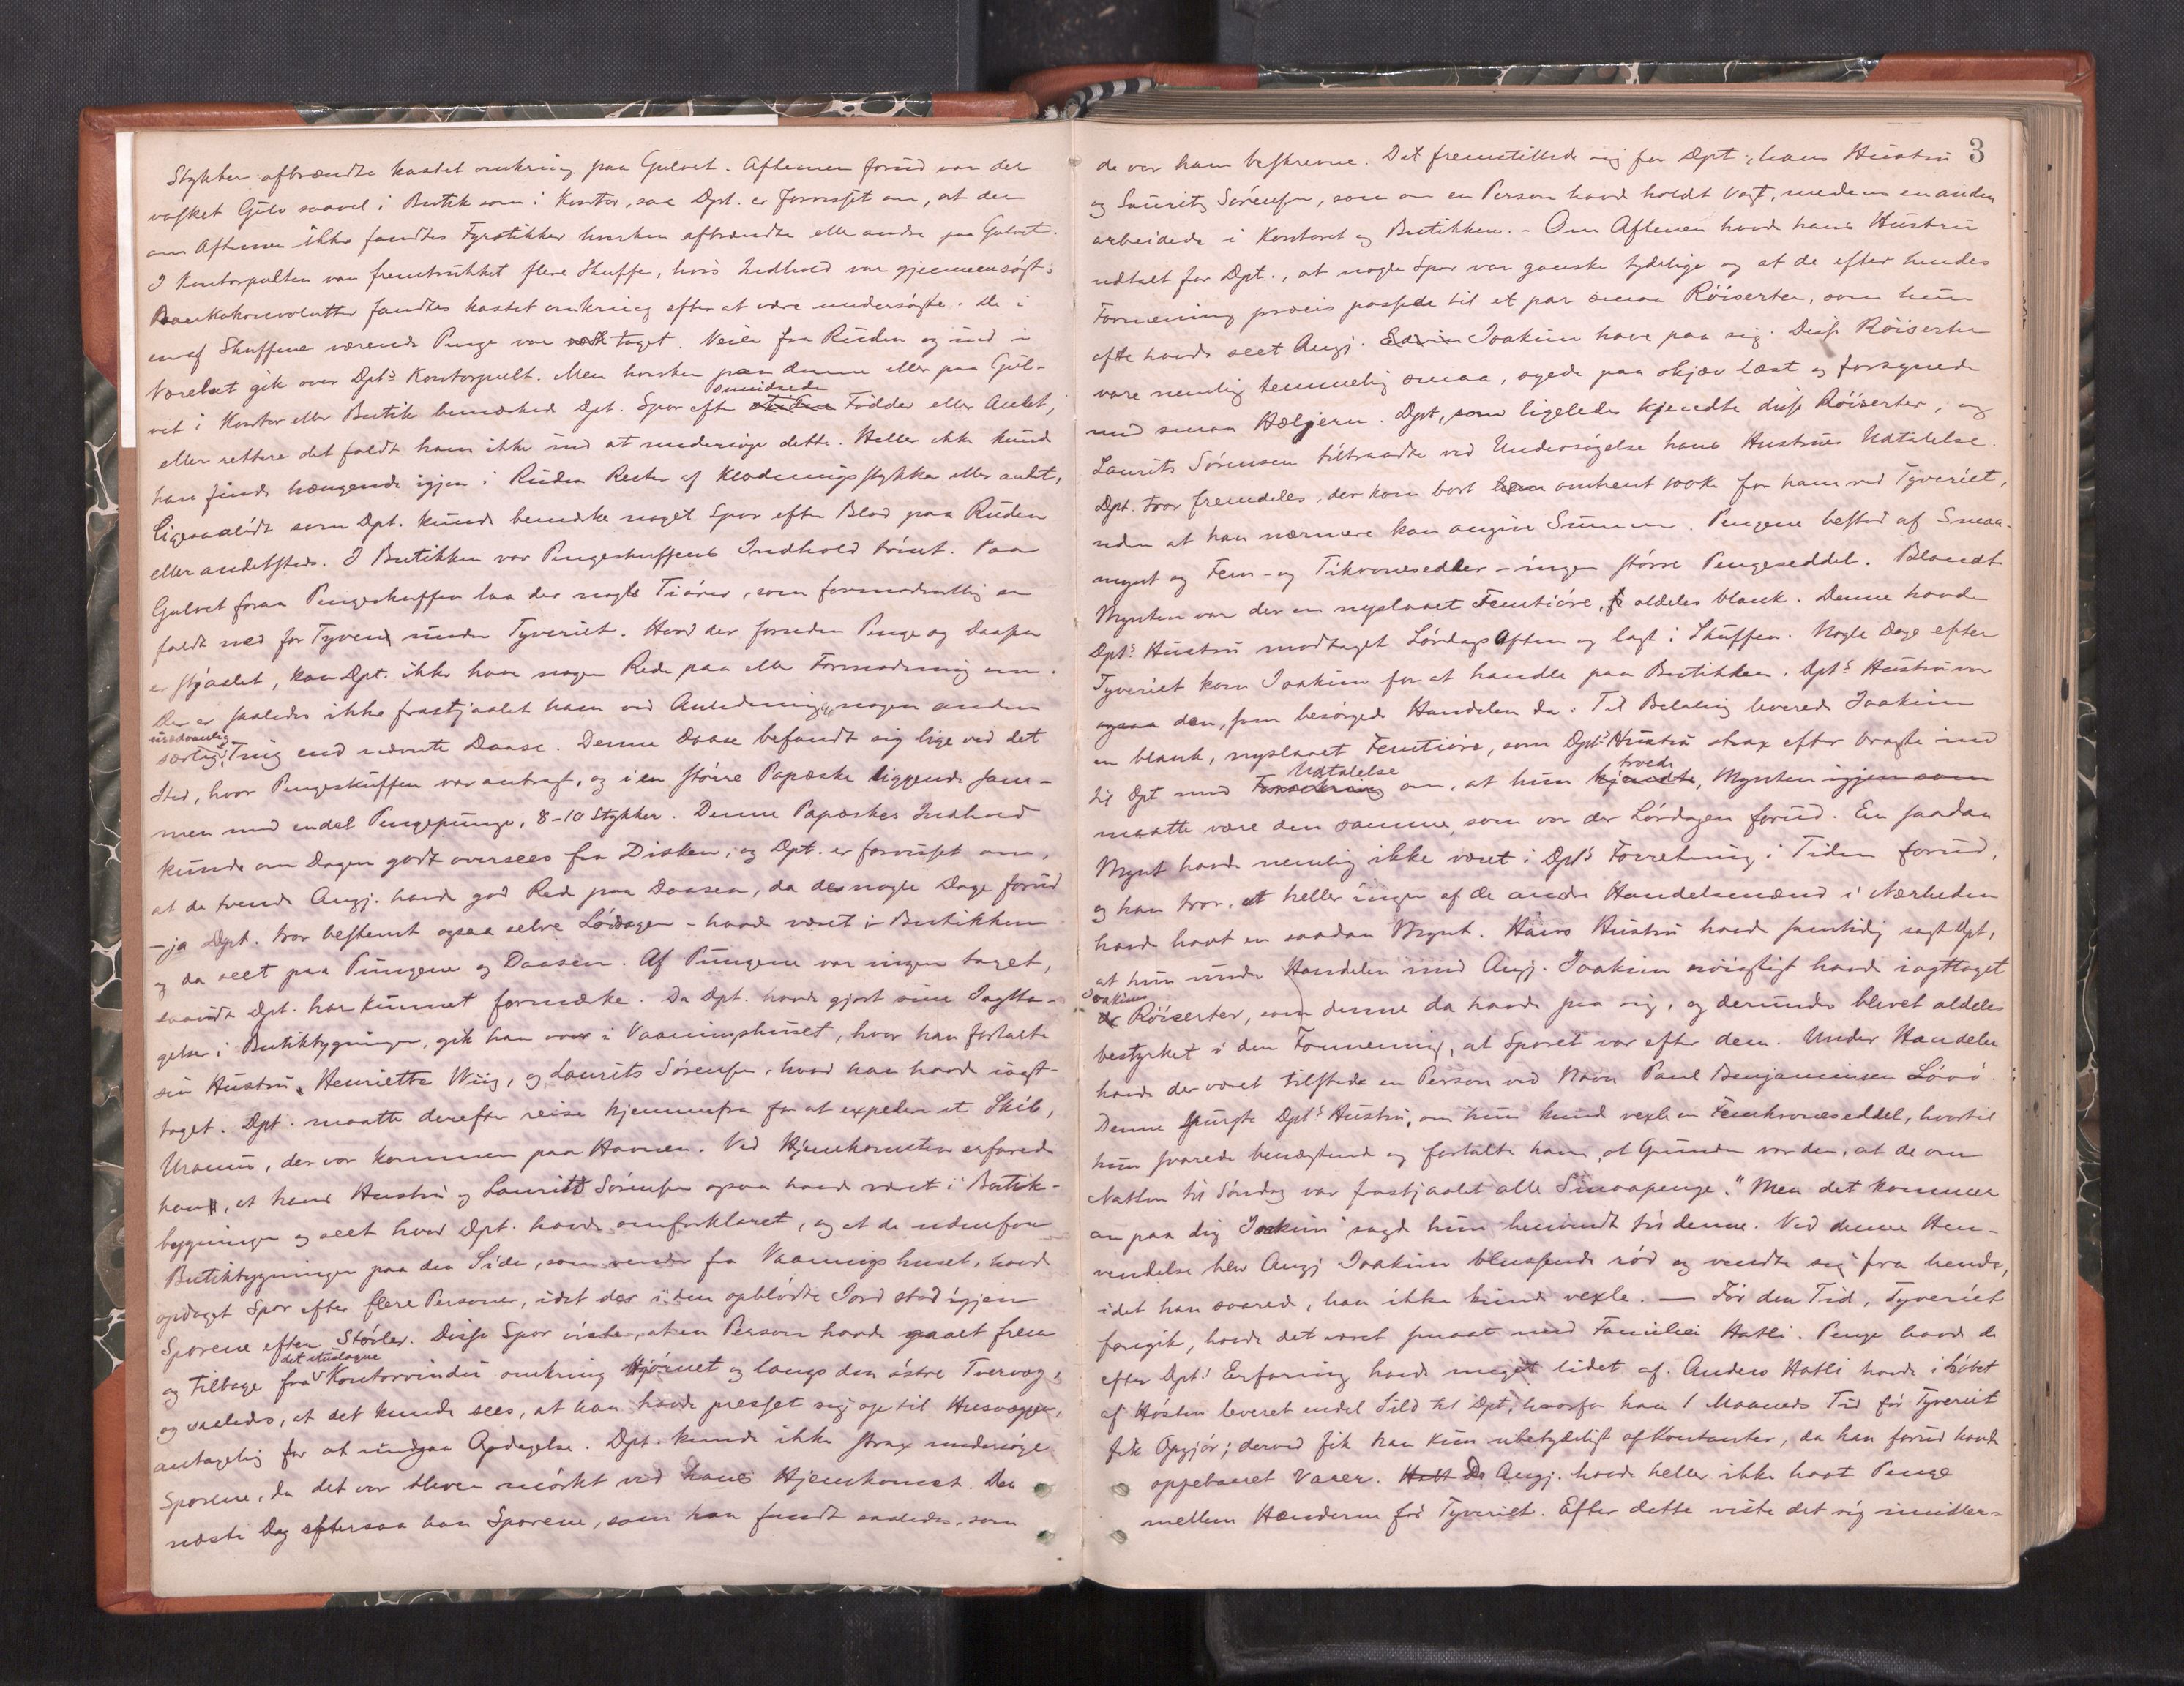 Stykker afbrændte kastet omkring paa Gulvet. Aftenen forud var der
vasket Gulv saavel i Butik som i Kontor, saa Dpt. er forvisset om, at der
om Aftenen ikke fandtes Fyrstikker hverken afbrændte eller andre paa Gulvet.
I Kontorpulten var fremtrukket flere Skuffer, hvis Indhold var gjennemsøgt;
Bankokonvolutter fandtes kastet omkring efter at være undersøgte. De i
en af Skufferne værende Penge var taget. Veien fra Ruden og ind i
Værelset gik over Dpts Kontorpult. Men hverken paa denne eller paa Gul-
vet i Kontor eller Butik bemærkede Dpt. Spor efter smudsede Fødder eller Andet,
eller rettere det faldt ham ikke ind at undersøge dette. Heller ikke kunde
han finde hængende igjen i Ruden Rester af Klædningsstykker eller andet,
ligesaalidt som Dpt. kunde bemærke noget Spor efter Blod paa Ruden
eller andetsteds. I Butikken var Pengeskuffens Indhold tømt. Paa
Gulvet foran Pengeskuffen laa der nogle Tiører, som formodentlig er
faldt ned for Tyven under Tyveriet. Hvad der foruden Penge og Daasen
er stjaalet, kan Dpt. ikke have nogen Rede paa eller Formodning om.
Der er saaledes ikke frastjaalet ham ved Anledningen nogen anden
usædvanlig
særlig Ting end nævnte Daase. Denne Daase befandt sig lige ved det
Sted, hvor Pengeskuffen var anbragt, og i en større Papæske liggende sam-
men med endel Pengepunge, 8-10 Stykker. Denne Papæskes Indhold
kunde om Dagen godt oversees fra Disken, og Dpt. er forvisset om,
at de tvende Angj. havde god Rede paa Daasen, da de nogle Dage forud
- ja Dpt. tror bestemt ogsaa selve Lørdagen - havde været i Butikken
og da seet paa Pungene og Daasen. Af Pungene var ingen taget,
saavidt Dpt. har kunnet formærke. Da Dpt. havde gjort sine Iagtta-
gelser i Butikbygningen, gik han over i Vaaningshuset, hvor han fortalte
sin Hustru, Henriette Wiig, og Laurits Sørensen, hvad han havde iagt-
taget. Dpt. maatte derefter reise hjemmefra for at expedere et Skib,
Uranus, der var kommen paa Havnen. Ved Hjemkomsten erfarede
han, at hans Hustru og Laurits Sørensen ogsaa havde været i Butik-
bygningen og seet hvad Dpt. havde omforklaret, og at de udenfor
Butikbygningen paa den Side, som vender fra Vaaningshuset, havde
opdaget Spor efter flere Personer, idet der i den opblødte Jord stod igjen
Sporene efter Støvler. Disse Spor viste, at en Person havde gaaet frem
og tilbage fra det itusslagne Kontorvindu omkring Hjørnet og langs den østre Tvervæg,
og saaledes, at det kunde sees, at han havde presset sig op til Husvæggen,
antagelig for at undgaa Opdagelse. Dpt. kunde ikke strax undersøge
Sporene, da det var bleven mørkt ved hans Hjemkomst. Den
næste Dag eftersaa han Sporene, som han fandt saaledes, som
3
de var ham beskrevne. Det fremstillede sig for Dpt., hans Hustru
og Laurits Sørensen, som om en Person havde holdt Vagt, medens en anden
arbeidede i Kontoret og Butikken. - Om Aftenen havde hans Hustru
udtalt for Dpt., at nogle Spor var ganske tydelige og at de efter hendes
Formening præcis passede til et par smaa Røiserter, som hun
ofte havde seet Angj. Edvin Joakim have paa sig. Disse Røiserter
vare nemlig temmelig smaa, ogede paa skjæv Læst og forsynede
med smaa Hæljern. Dpt, som ligeledes kjendte disse Røiserter, og
Laurits Sørensen tiltraadte ved Undersøgelse hans Hustrues Udtalelse.
Dpt. tror fremdeles, der kom bort omtrent 100 k for ham ved Tyveriet,
uden at han nærmere kan angive Summen. Pengene bestod af Smaa-
mynt og Fem- og Tikronesedler - ingen større Pengeseddel. Blandt
Mynten var der en nyslaaet Femtiøre, aldeles blank. Denne havde
Dpts Hustru modtaget Lørdags Aften og lagt i Skuffen. Nogle Dage efter
Tyveriet kom Joakim for at handle paa Butikken. Dpts Hustru var
ogsaa den, som besørgede Handelen da. Til Betaling leverede Joakim
en blank, nyslaaet Femtiøre, som Dpts Hustru strax efter bragte ind
til Dpt med Forsikring Udtalelse om, at hun kjendte troede, Mynten igjen som
maatte være den samme, som var der Lørdagen forud. En saadan
Mynt havde nemlig ikke været i Dpts Forretning i Tiden forud,
og han tror, at heller ingen af de andre Handelsmænd i Nærheden
havde havt en saadan Mynt. Hans Hustru havde samtidig sagt Dpt,
at hun under Handelen med Angj. Joakim nøiagtigt havde iagttaget
Joakims
de Røiserter, som denne da havde paa sig, og derunder blevet aldeles
bestyrket i den Formening, at Sporet var efter dem. Under Handelen
havde der været tilstede en Person ved Navn Paul Benjaminsen Løvø.
Denne spurgte Dpts Hustru, om hun kunde vexle en Femkroneseddel, hvortil
hun svarede benægtende og fortalte ham, at Grunden var den, at de om
Natten til Søndag var frastjaalet alle Smaapenge. "Men det kommer
an paa dig Joakim" sagde hun henvendt til denne. Ved denne Hen-
vendelse blev Angj Joakim blussende rød og vendte sig fra hende,
idet han svarede, han ikke kunde vexle. — Før den Tid, Tyveriet
foregik, havde det været smaat med Familien Hatli. Penge havde de
efter Dpts Erfaring havde meget lidet af. Anders Hatli havde i Løbet
af Høsten leveret endel Sild til Dpt, hvorfor han 1 Maaneds Tid før Tyveriet
fik Opgjør; derved fik han kun ubetydeligt af Kontanter, da han forud havde
oppebaaret Varer. Hatt De Angj. havde heller ikke havt Penge
mellem Hænderne før Tyveriet. Efter dette viste det sig imidler-